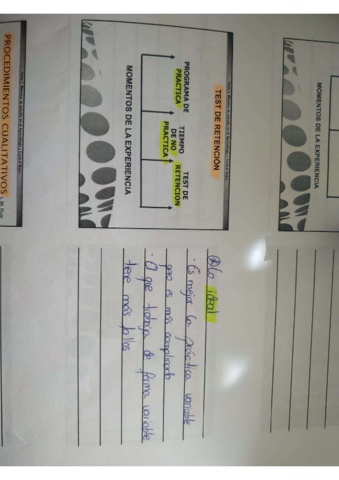 MOMENTOS DE LA EXPERIENCIA
TEST DE RETENCIÓN
PROGRAMA DE
PRÁCTICA
TIEMPO
DE NO
PRÁCTICA
TEST DE
RETENCIÓN
MOMENTOS DE LA EXPERIENCIA
PROCEDIMIENTOS CUALITATIVOS
Lo ideal
· Es mejor la práctica variable
que es más complicada
· El que trabaja de forma variable
tiene más fallos